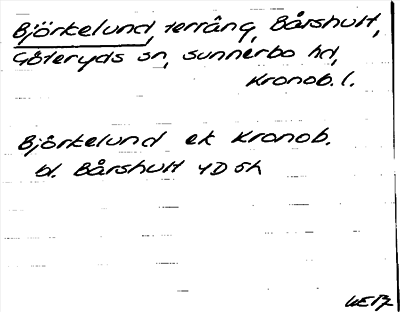 Björkelund, terräng, Bårshult,
Göteryds sn, Sunnerbo hd,
Kronob. l.
Björkelund ek Kronob.
bl. Bårshult 4D5h